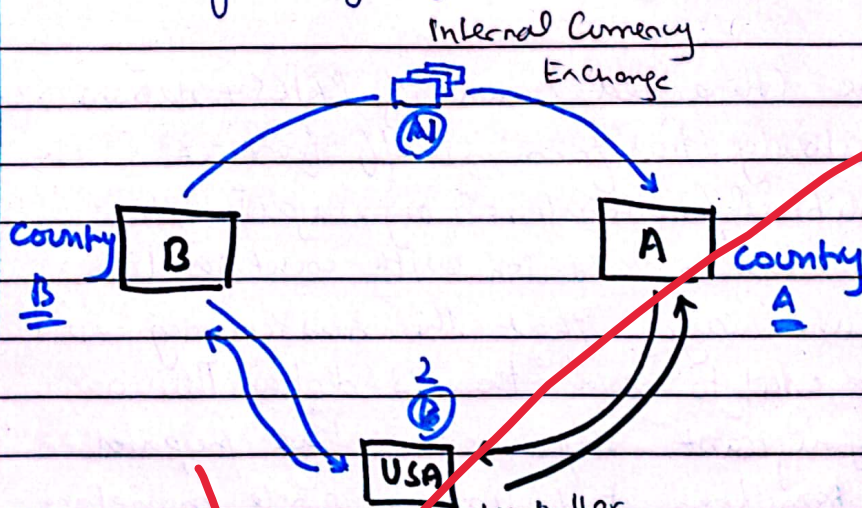 Internal Currency
Exchange
A1
Country
B
B
A
Country
A
2
B
USA